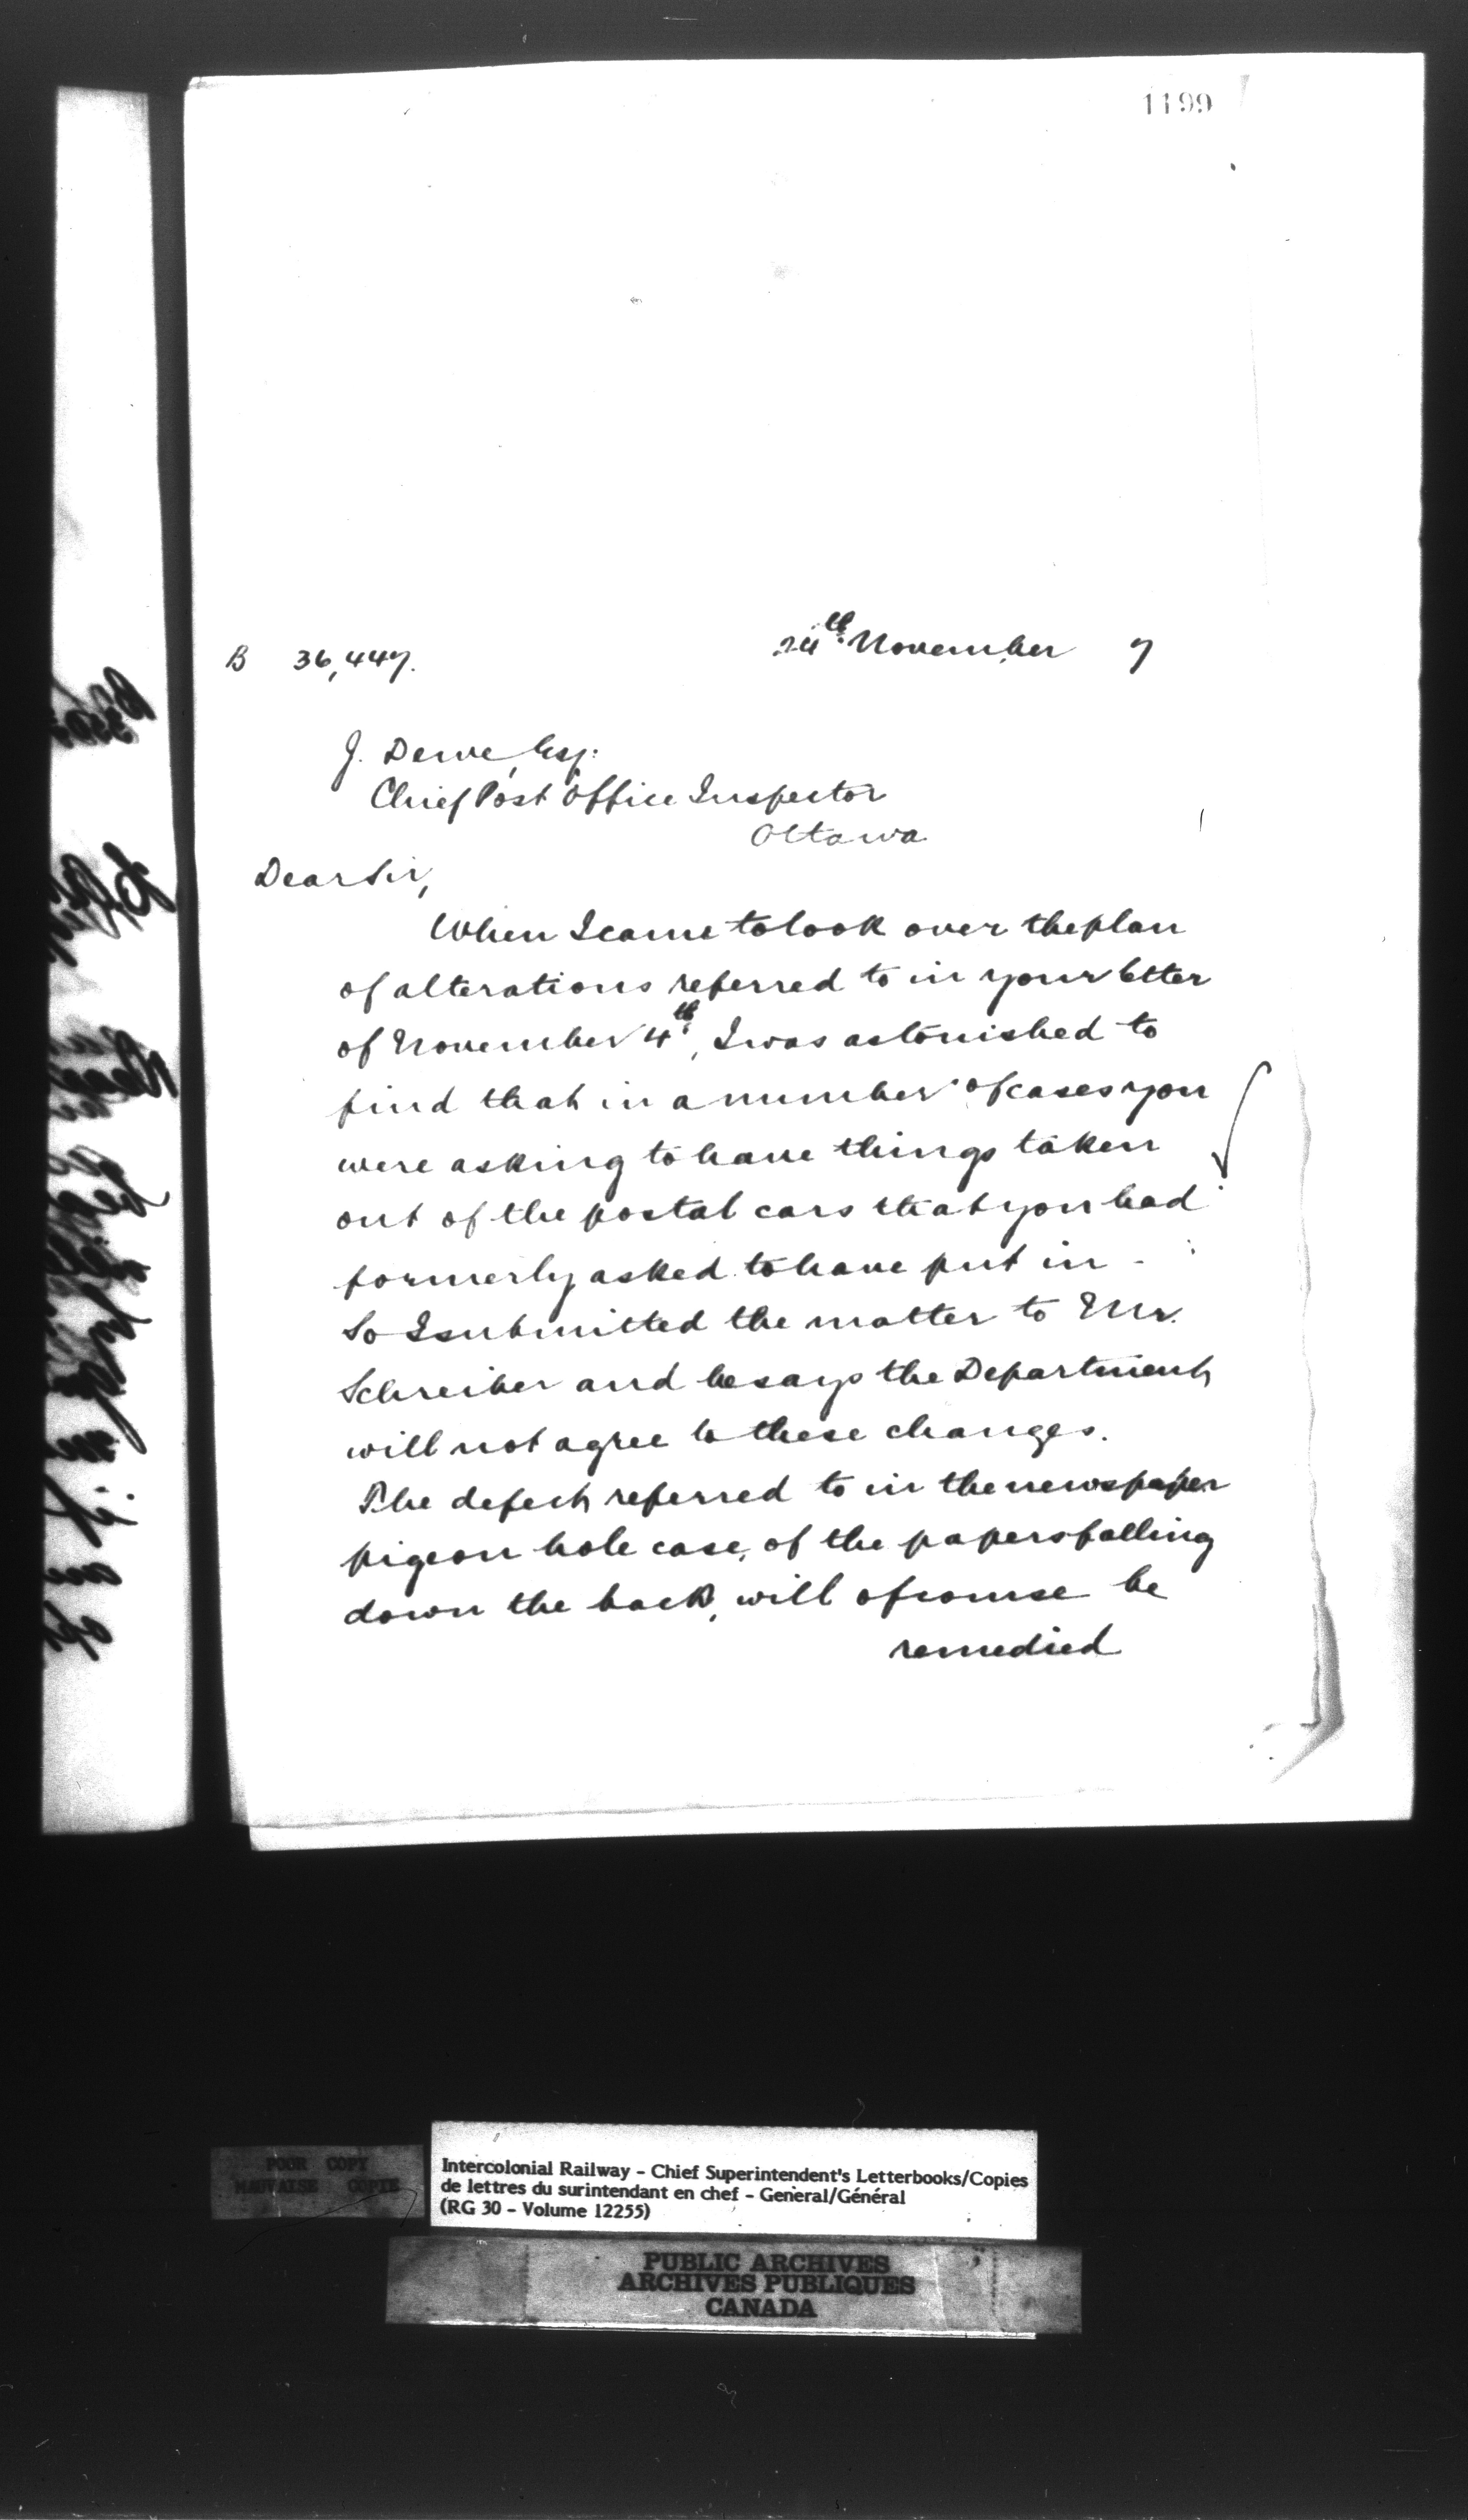 1199
B 36,447. 24th November 7
J. Dewe, Esq:
Chief Post Office Inspector
Ottawa
Dear Sir,
When I came to look over the plan
of alterations referred to in your letter
of November 4th, I was astonished to
find that in a number of cases you
were asking to have things taken
out of the postal cars that you had
formerly asked to have put in -
So I submitted the matter to Mr.
Schreiber and he says the Department
will not agree to these changes.
The defect referred to in the newspaper
pigeon hole case, of the papers falling
down the back, will of course be
remedied
POOR COPY
MAUVAISE COPIE
Intercolonial Railway - Chief Superintendent's Letterbooks/Copies
de lettres du surintendant en chef - General/Général
(RG 30 - Volume 12255)
PUBLIC ARCHIVES
ARCHIVES PUBLIQUES
CANADA